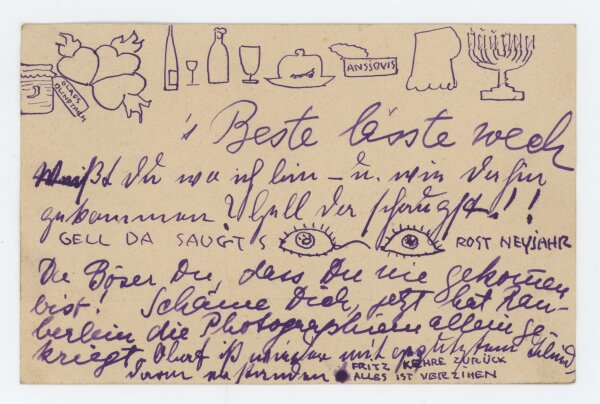 ANSSOVIS
's Beste lässte weck
Weißt Du wo ich bin – u. wie daher
gekommen? Gell da schaugst!!
GELL DA SAUGT S ROST NEYJAHR
Du Böser Du, dass Du nie gekommen
bist! Schäme Dich, jetzt hat
die Photographien allein ge-
kriegt. Olaf ist wieder mit
FRITZ KEHRE ZURÜCK
ALLES IST VERZIHEN